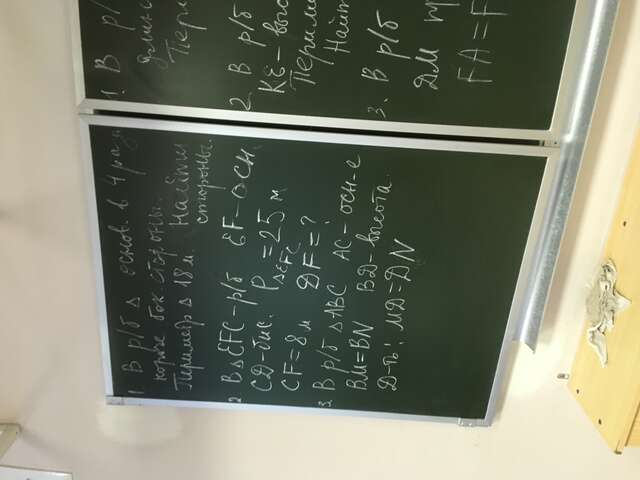 1. В р/б Δ основ. в 4 раза
короче бок. стороны.
Периметр Δ 18 м. Найти
стороны.
2. В Δ EFC - р/б EF - осн.
CD - бис. P ΔEFC = 25 м
CF = 8 м DF = ?
3. В р/б Δ ABC AC - осн-е
BM = BN BD - высота.
Д-ть: MD = DN
1. В р/
Пери
2. В р/б
KE - выс
Периме
Найт
3. В р/б
ДМ
FA = F